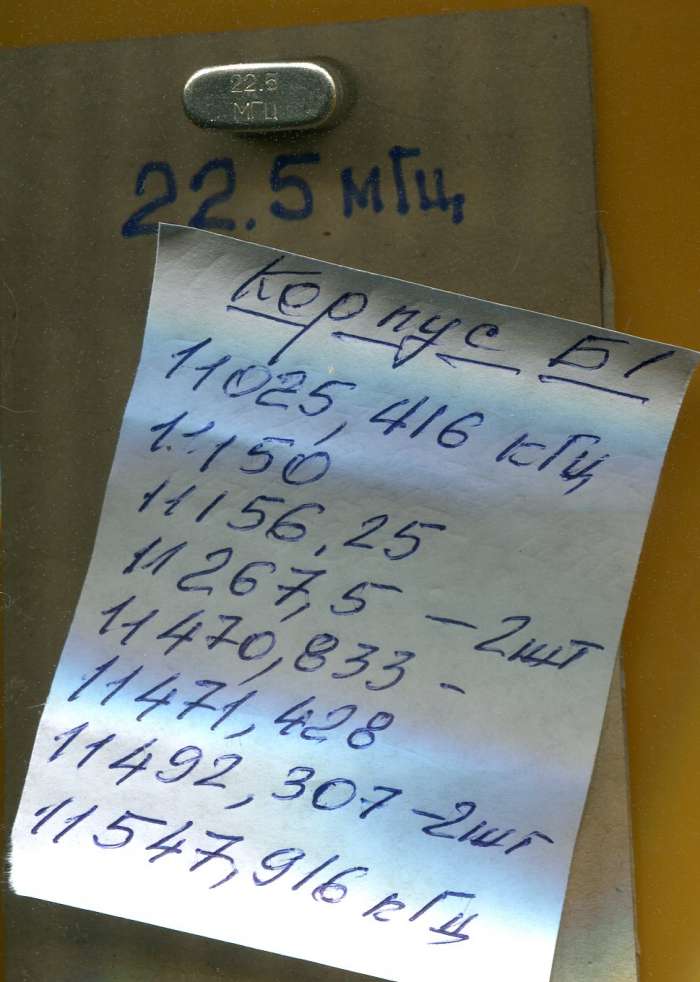 22.5
МГЦ
22.5 мГц
Корпус Б1
11025,416 кГц
11150
11156,25
11267,5 - 2шт
11470,833 -
11471,428
11492,307 - 2шт
11547,916 кГц